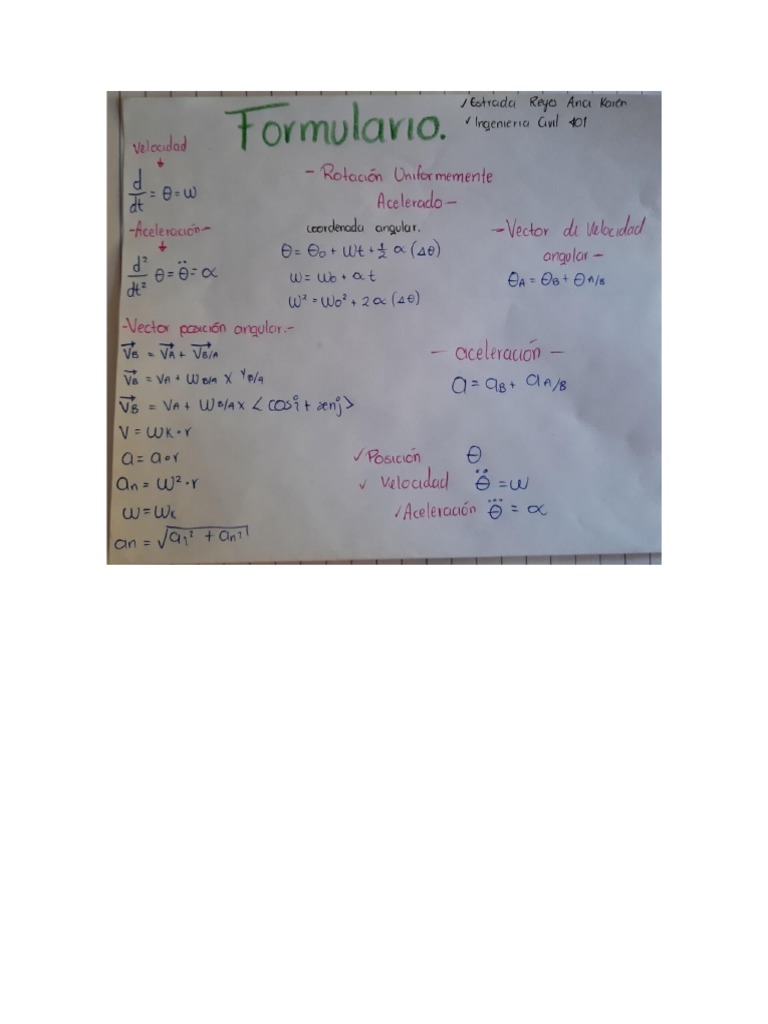 Formulario.
✓ Estrada Reyes Ana Karen
✓ Ingenieria Civil 401
Velocidad
↓
d/dt = θ = ω
- Aceleración -
↓
d²/dt² θ = θ̈ = α
- Rotación Uniformemente
Acelerado -
coordenada angular.
θ = θ₀ + ωt + ½ α (Δθ)
ω = ω₀ + αt
ω² = ω₀² + 2α (Δθ)
- Vector de Velocidad
angular -
θA = θB + θA/B
- Vector posición angular. -
V⃗B = V⃗A + V⃗B/A
V⃗B = VA + ωB/A × γB/A
V⃗B = VA + ωB/A × < cosi + senj >
V = ωK · r
a = a ∘ r
an = ω² · r
ω = ωK
an = √a₁² + an²
- aceleración -
a = aB + aA/B
✓ Posición θ
✓ Velocidad θ̈ = ω
✓ Aceleración θ⃛ = α